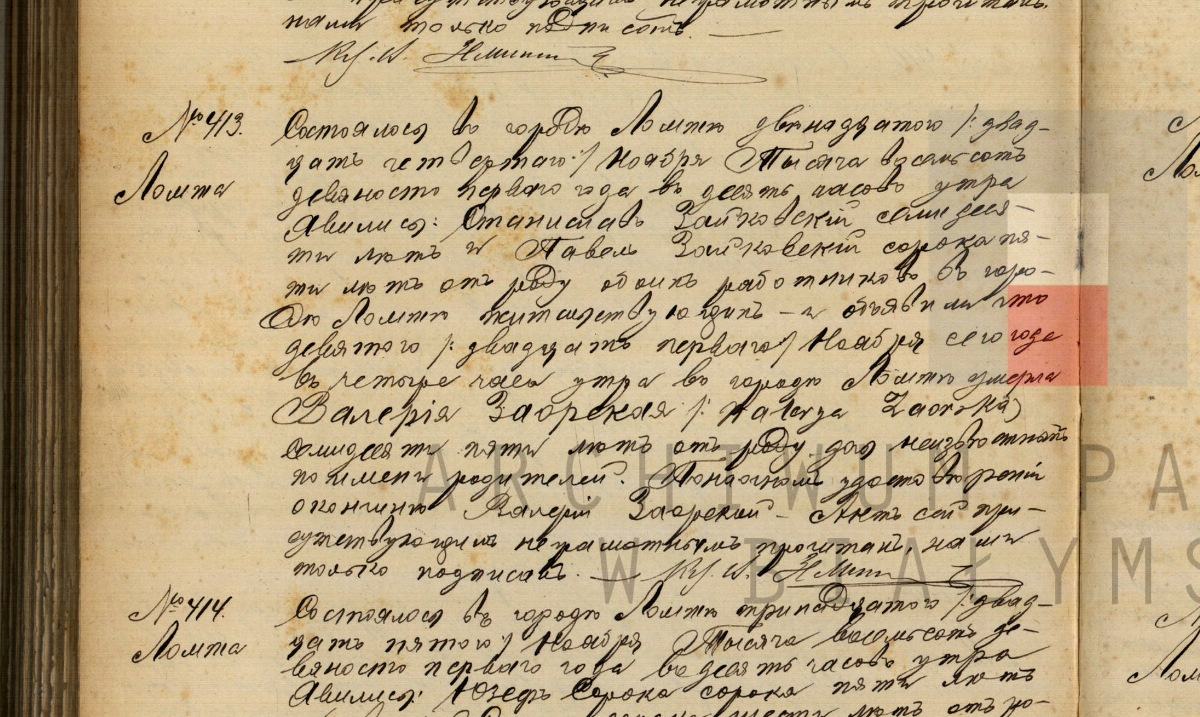 нами только подписанъ.
№ 413.
Ломжа
Состоялось въ городѣ Ломжѣ двѣнадцатого /: двад-
цать четвертаго :/ Ноября Тысяча восемьсотъ
девяносто перваго года въ десять часовъ утра
Явились: Станиславъ Зайковскій семидеся-
ти лѣтъ и Павелъ Зайковскій сорока пя-
ти лѣтъ отъ роду обоихъ работниковъ въ горо-
дѣ Ломжѣ жительствующихъ – и объявили что
девятого /: двадцать перваго :/ Ноября сего года
въ четыре часа утра въ городѣ Ломжѣ умерла
Валерія Заорская /: Waleryа Zaorska)
семидесяти пяти лѣтъ отъ роду дочь неизвѣстныхъ
по имени родителей. По удостовѣреніи
о кончинѣ Валеріи Заорской – Актъ сей при-
сутствующимъ неграмотнымъ прочитанъ, нами
только подписанъ.
№ 414.
Ломжа
Состоялось въ городѣ Ломжѣ тринадцатого /: двад-
цать пятого :/ Ноября Тысяча восемьсотъ де-
вяносто перваго года въ десять часовъ утра
Явились: Юзефъ Сорока сорока пяти лѣтъ
лѣтъ отъ ро-
ARCHIWUM PA
W BIAŁYMS